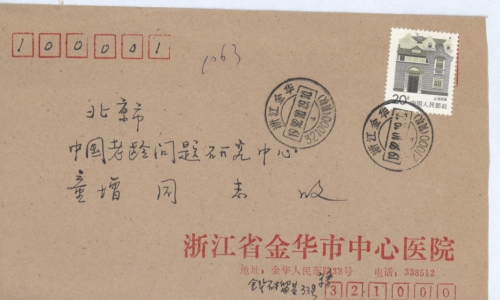 100001
1063
20分
中国人民邮政
浙江金华
北京市
中国老龄问题研究中心
童增同志收
浙江省金华市中心医院
地址：金华人民东路38号 电话：338512
321000